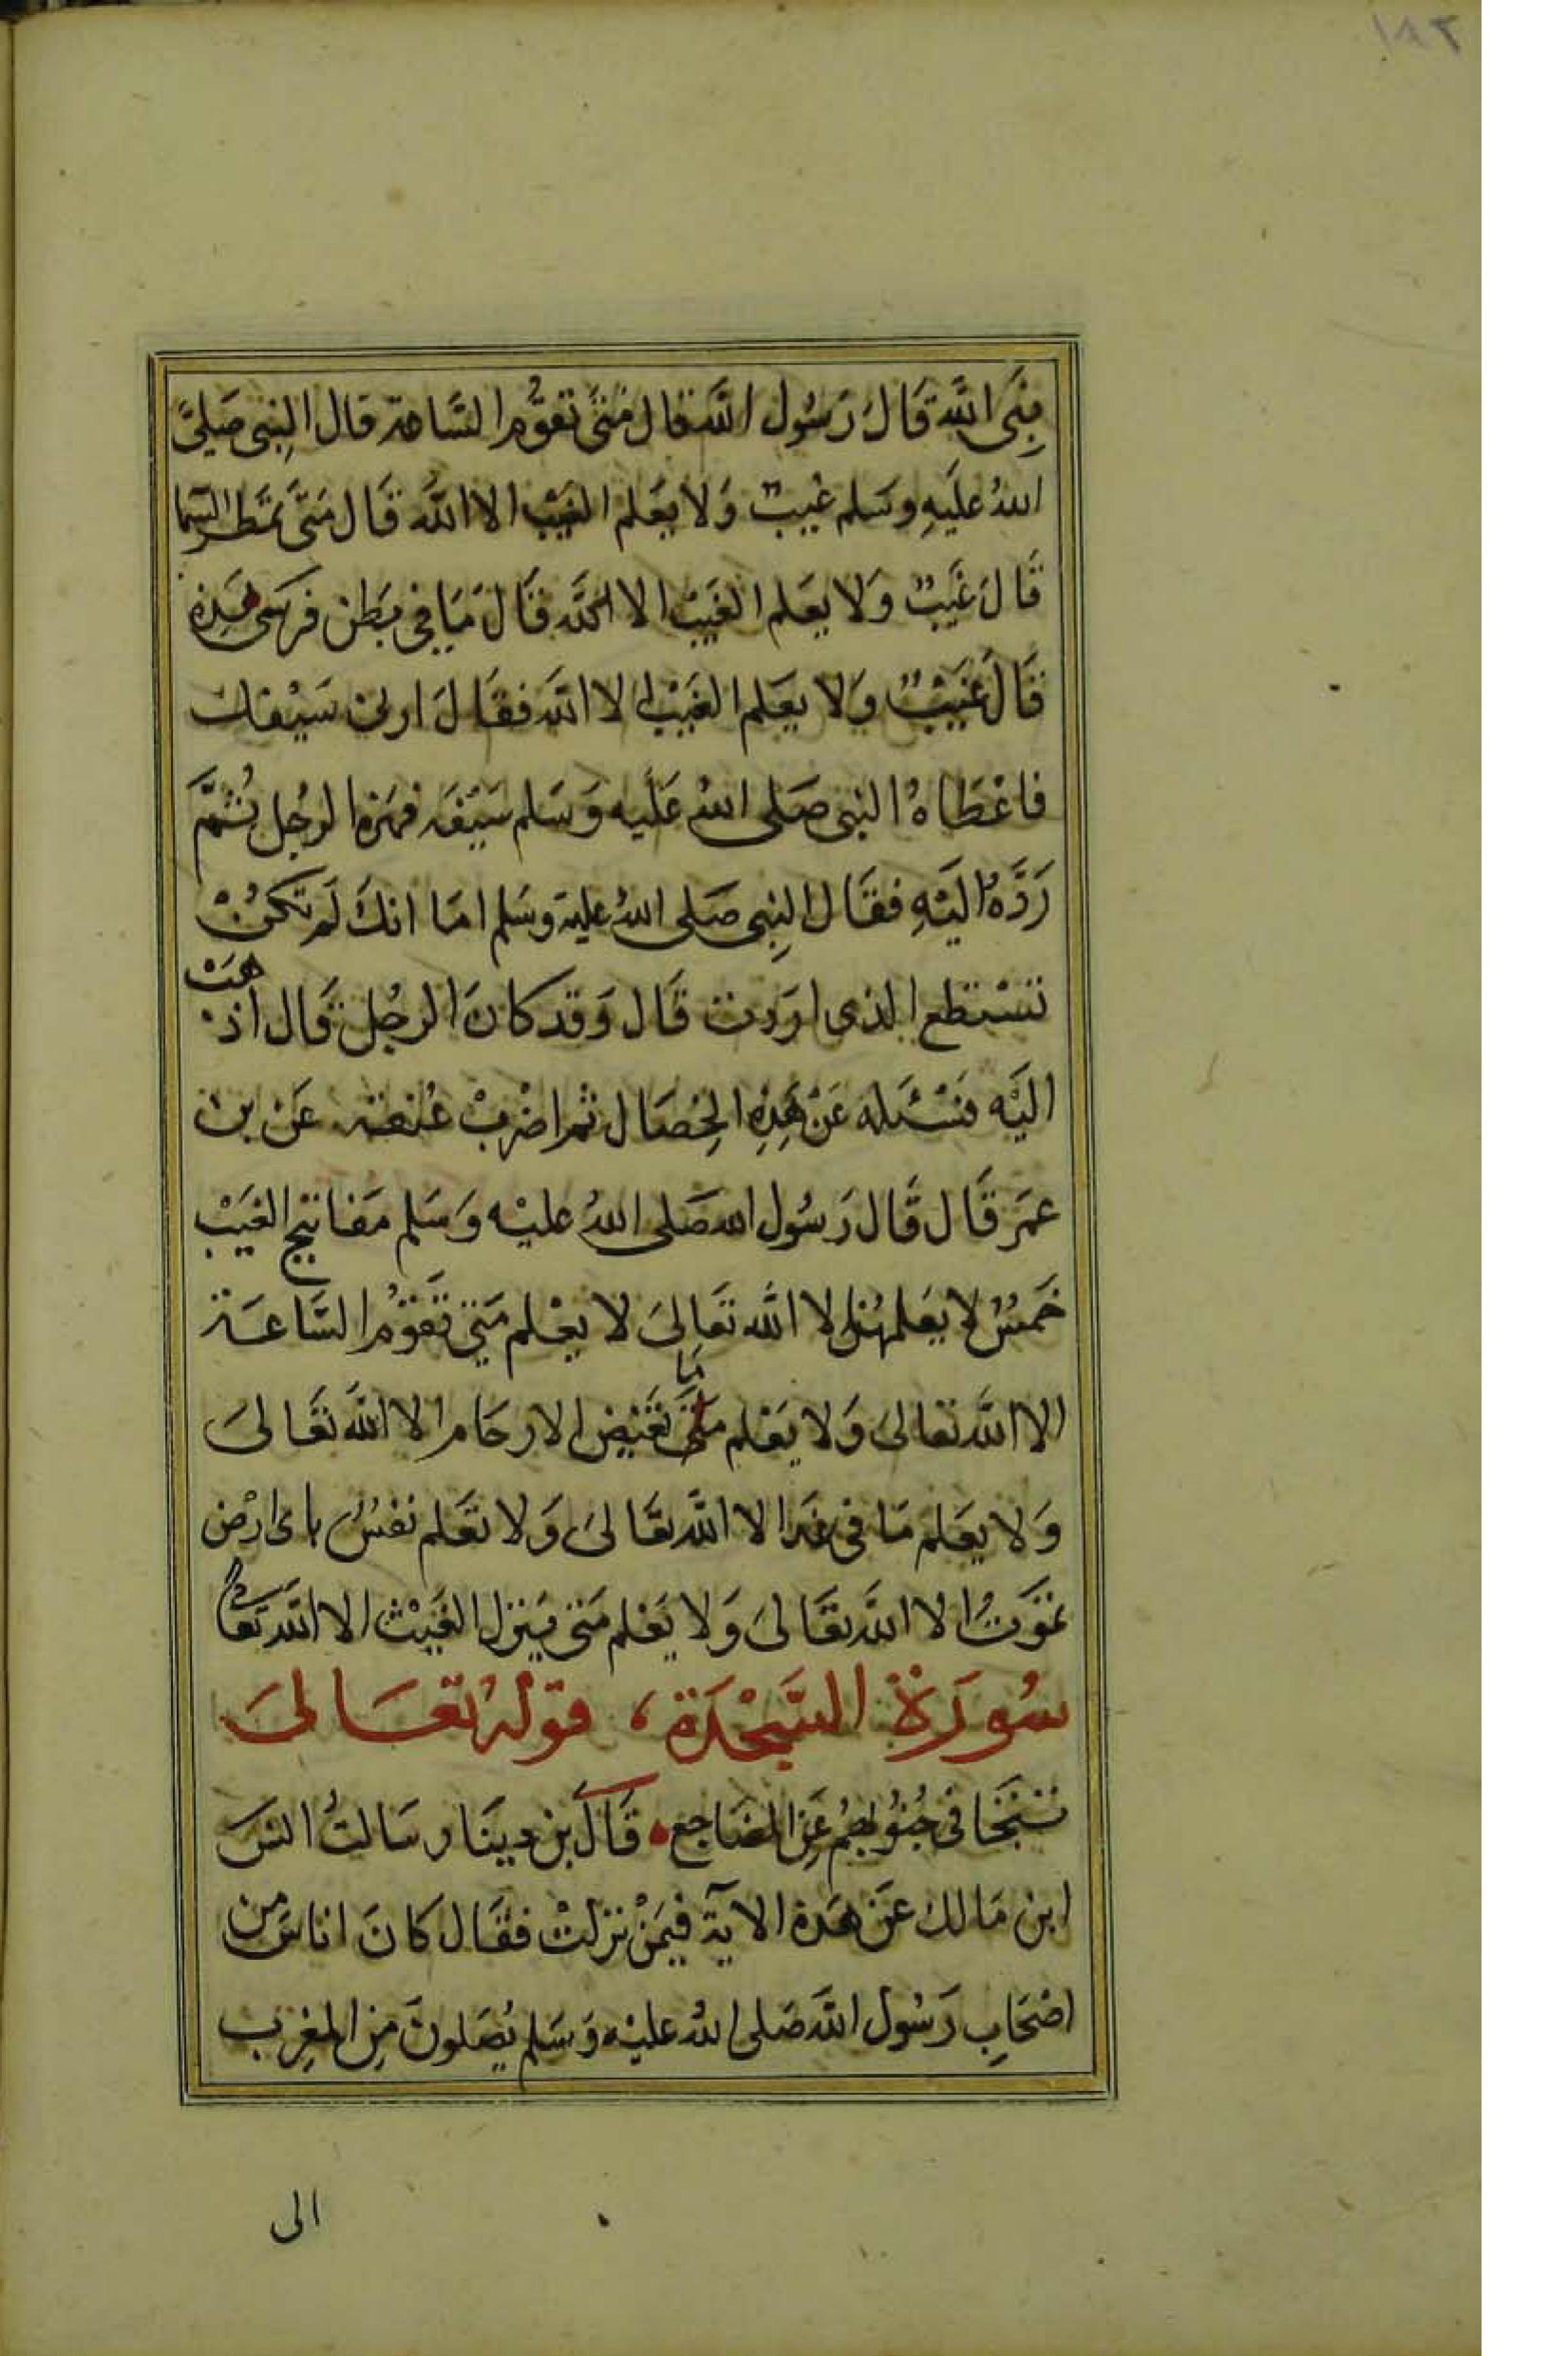 نَبِى الله قَالَ رَسُول الله قال مَتىَ تقوُم السَّاعة قال النبِى صَلىَّ
اللهُ عليَهِ وسَلم غيبٌ وَلا يعَلم الغيَبْ الا الله قَال مَتىَّ تمَطر السَما
قَالَ غَيَبٌ وَلا يعَلم الغيَبْ الا الله قَالَ مَا فى بَطن فرسَى هَذِه
قَالَ غيَبْ وَلا يعَلم الغَيبْ الا الله فقَالَ ارنى سَيْفك
فاعْطَاهُ النبى صَلى اللهُ عَليه وَسَلم سَيْفَه فهزه الرجُل ثُمَّ
رَدَّهُ اليَهِ فقَال النبِى صَلى اللهُ عليه وسَلم امَا انكَ لَم تكنُ
تسْتطع الذى اردت قَال وَقد كانَ الرجُل قَال اذهَبْ
اليَه فَسْئَله عَنْ هَذِه الخِصَال ثم اضْربْ عُنقه عَن بن
عمَر قَال قَال رَسُول الله صَلى اللهُ عليْه وَسَلم مَفاتيح الغيَبْ
خَمسُ لا يعَلمهُن الا الله تعَالىَ لا يعْلم مَتى تقَوُم السَّاعَة
الا الله تعالىَ وَلا يعَلم مَا تغَيض الارحَام الا الله تعَالىَ
وَلا يعَلم مَا فى غدَا الا الله تعَالىَ وَلا تعَلم نفسُ باى ارْض
تموَتُ الا الله تعَالىَ وَلا يعَلم مَتى يَنزل الغيَثْ الا الله تعَالى
سُورَة السَّجْدَة ، قوله تعَالىَ
تتجَافى جُنوُبهُم عَنِ المضَاجع قَالَ بن دينَار سَالتُ انسَ
ابن مَالك عَن هَذه الآية فيمَنْ نزلتْ فقَال كَانَ اناسَ من
اصْحَابِ رَسُول الله صَلى اللهُ عليْه وَسَلم يُصَلونَ مِن المغِرب
الى